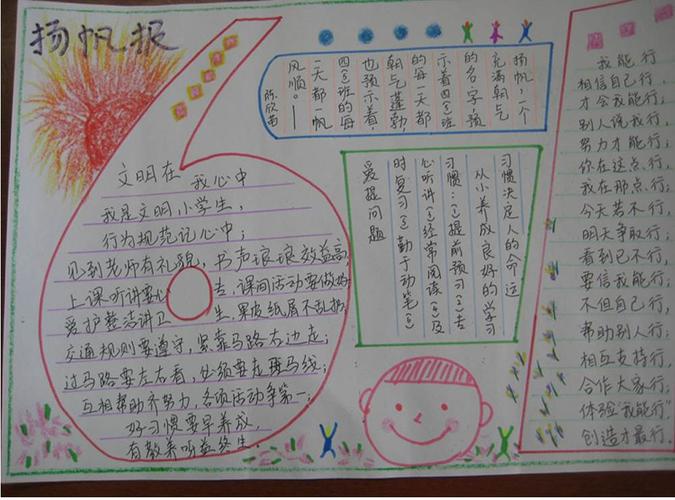 扬帆报
扬帆,一个
充满朝气
的名字,预
示着四(3)班
的每一天都
朝气蓬勃,
也预示着,
四(3)班的每
一天都一帆
风顺。——
文明在我心中
我是文明小学生,
行为规范记心中;
见到老师有礼貌,书声琅琅效益高;
上课听讲要心专,课间活动要做好;
爱护整洁讲卫生,果皮纸屑不乱抛;
交通规则要遵守,紧靠马路右边走;
过马路要左右看,必须要走斑马线;
互相帮助齐努力,各项活动争第一;
好习惯要早养成,
有教养听益终生。
习惯决定人的命运
从小养成良好的学习
习惯:(1)提前预习(2)专
心听讲(3)经常阅读(4)及
时复习(5)勤于动笔(6)
爱提问题
我能行
相信自己行,
才会我能行;
别人说我行,
努力才能行;
你在这点行,
我在那点行;
今天若不行,
明天争取行;
看到已不行,
要信我能行;
不但自己行,
帮助别人行;
相互支持行,
合作大家行;
体验“我能行”
创造才最行。